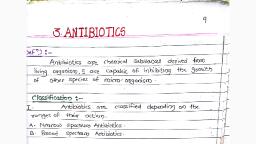 9
3. ANTIBIOTICS
Def") :-
Antibiotics are chemical substances derived from
living organism & are capable of inhibiting the growth
of other species of micro-organism
Classification :-
I- Antibiotics are classified depending on the
ranges of their action.
A- Narrow spectrum Antibiotics
B- Broad spectrum Antibiotics